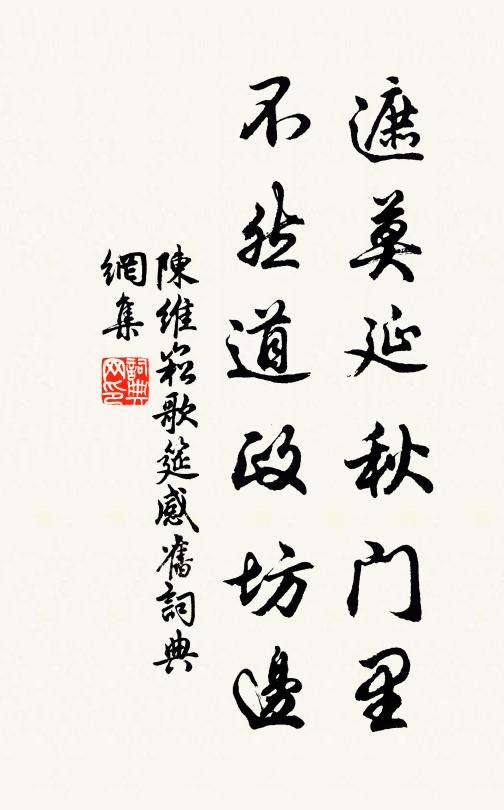 遮莫延秋门里
不然道政坊邊
陳維崧歌筵感舊詞典
網集
詞典
网印